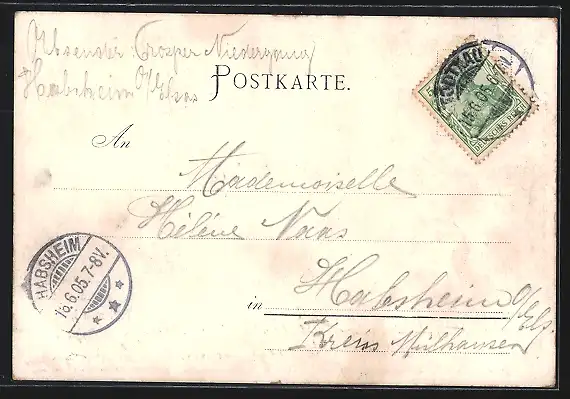 Absender: Prosper Niedergang
Habsheim O/Elsas
POSTKARTE.
An
Mademoiselle
Hélène Naas
in Habsheim O/Els.
Kreiss Mülhausen
HABSHEIM
16.6.05.7-8V.
15.6.05